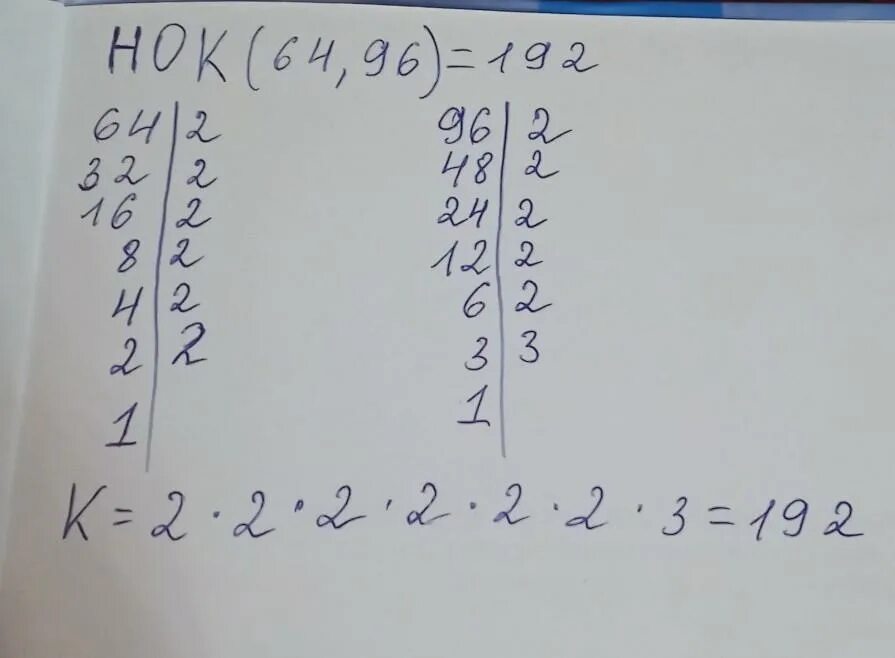 НОК(64,96)=192
64|2 96|2
32|2 48|2
16|2 24|2
8|2 12|2
4|2 6|2
2|2 3|3
1| 1|
К=2·2·2·2·2·2·3=192